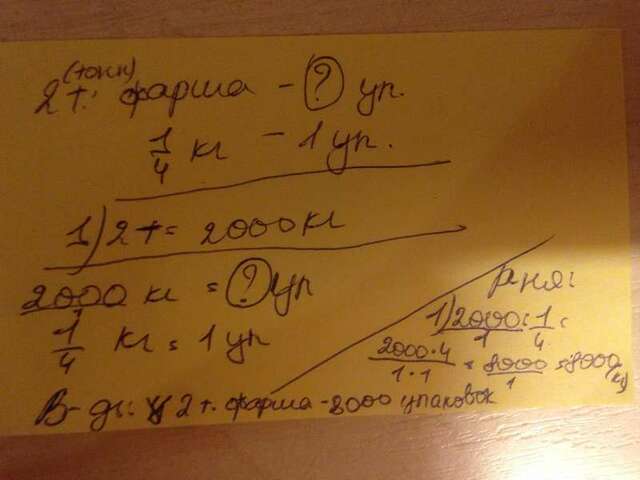 (тонн)
2 т. фарша - ? уп.
1/4 кг - 1 уп.
1) 2 т = 2000 кг
2000/1 кг = ? уп
1/4 кг = 1 уп
1) 2000/1 : 1/4 =
2000·4/1·1 = 8000/1 = 8000
2 т. фарша - 8000 упаковок